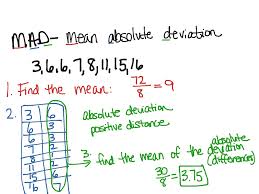 MAD- Mean absolute deviation
3,6,6,7,8,11,15,16
1. Find the mean: 72/8 = 9
2.
absolute deviation
positive distance
3 6
6 3
6 3
7 2
8 1
11 2
15 6
16
3. find the mean of the absolute deviation (differences)
30/8 = 3.75